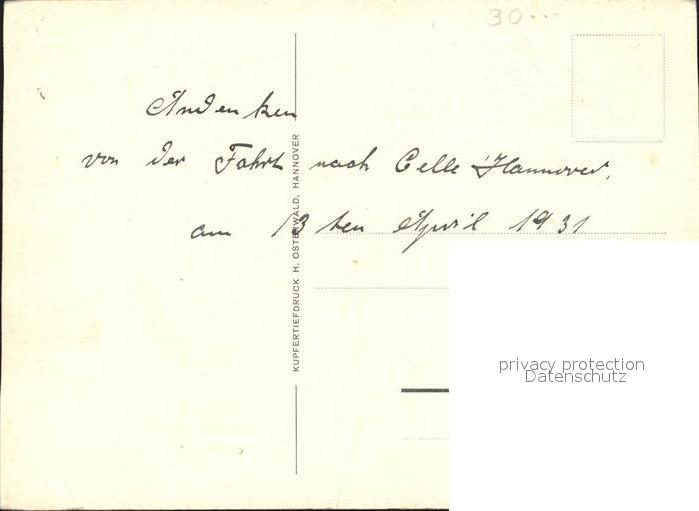 30...
Andenken
von der Fahrt nach Celle Hannover.
am 13ten April 1931
KUPFERTIEFDRUCK H. OSTERWALD, HANNOVER
privacy protection
Datenschutz